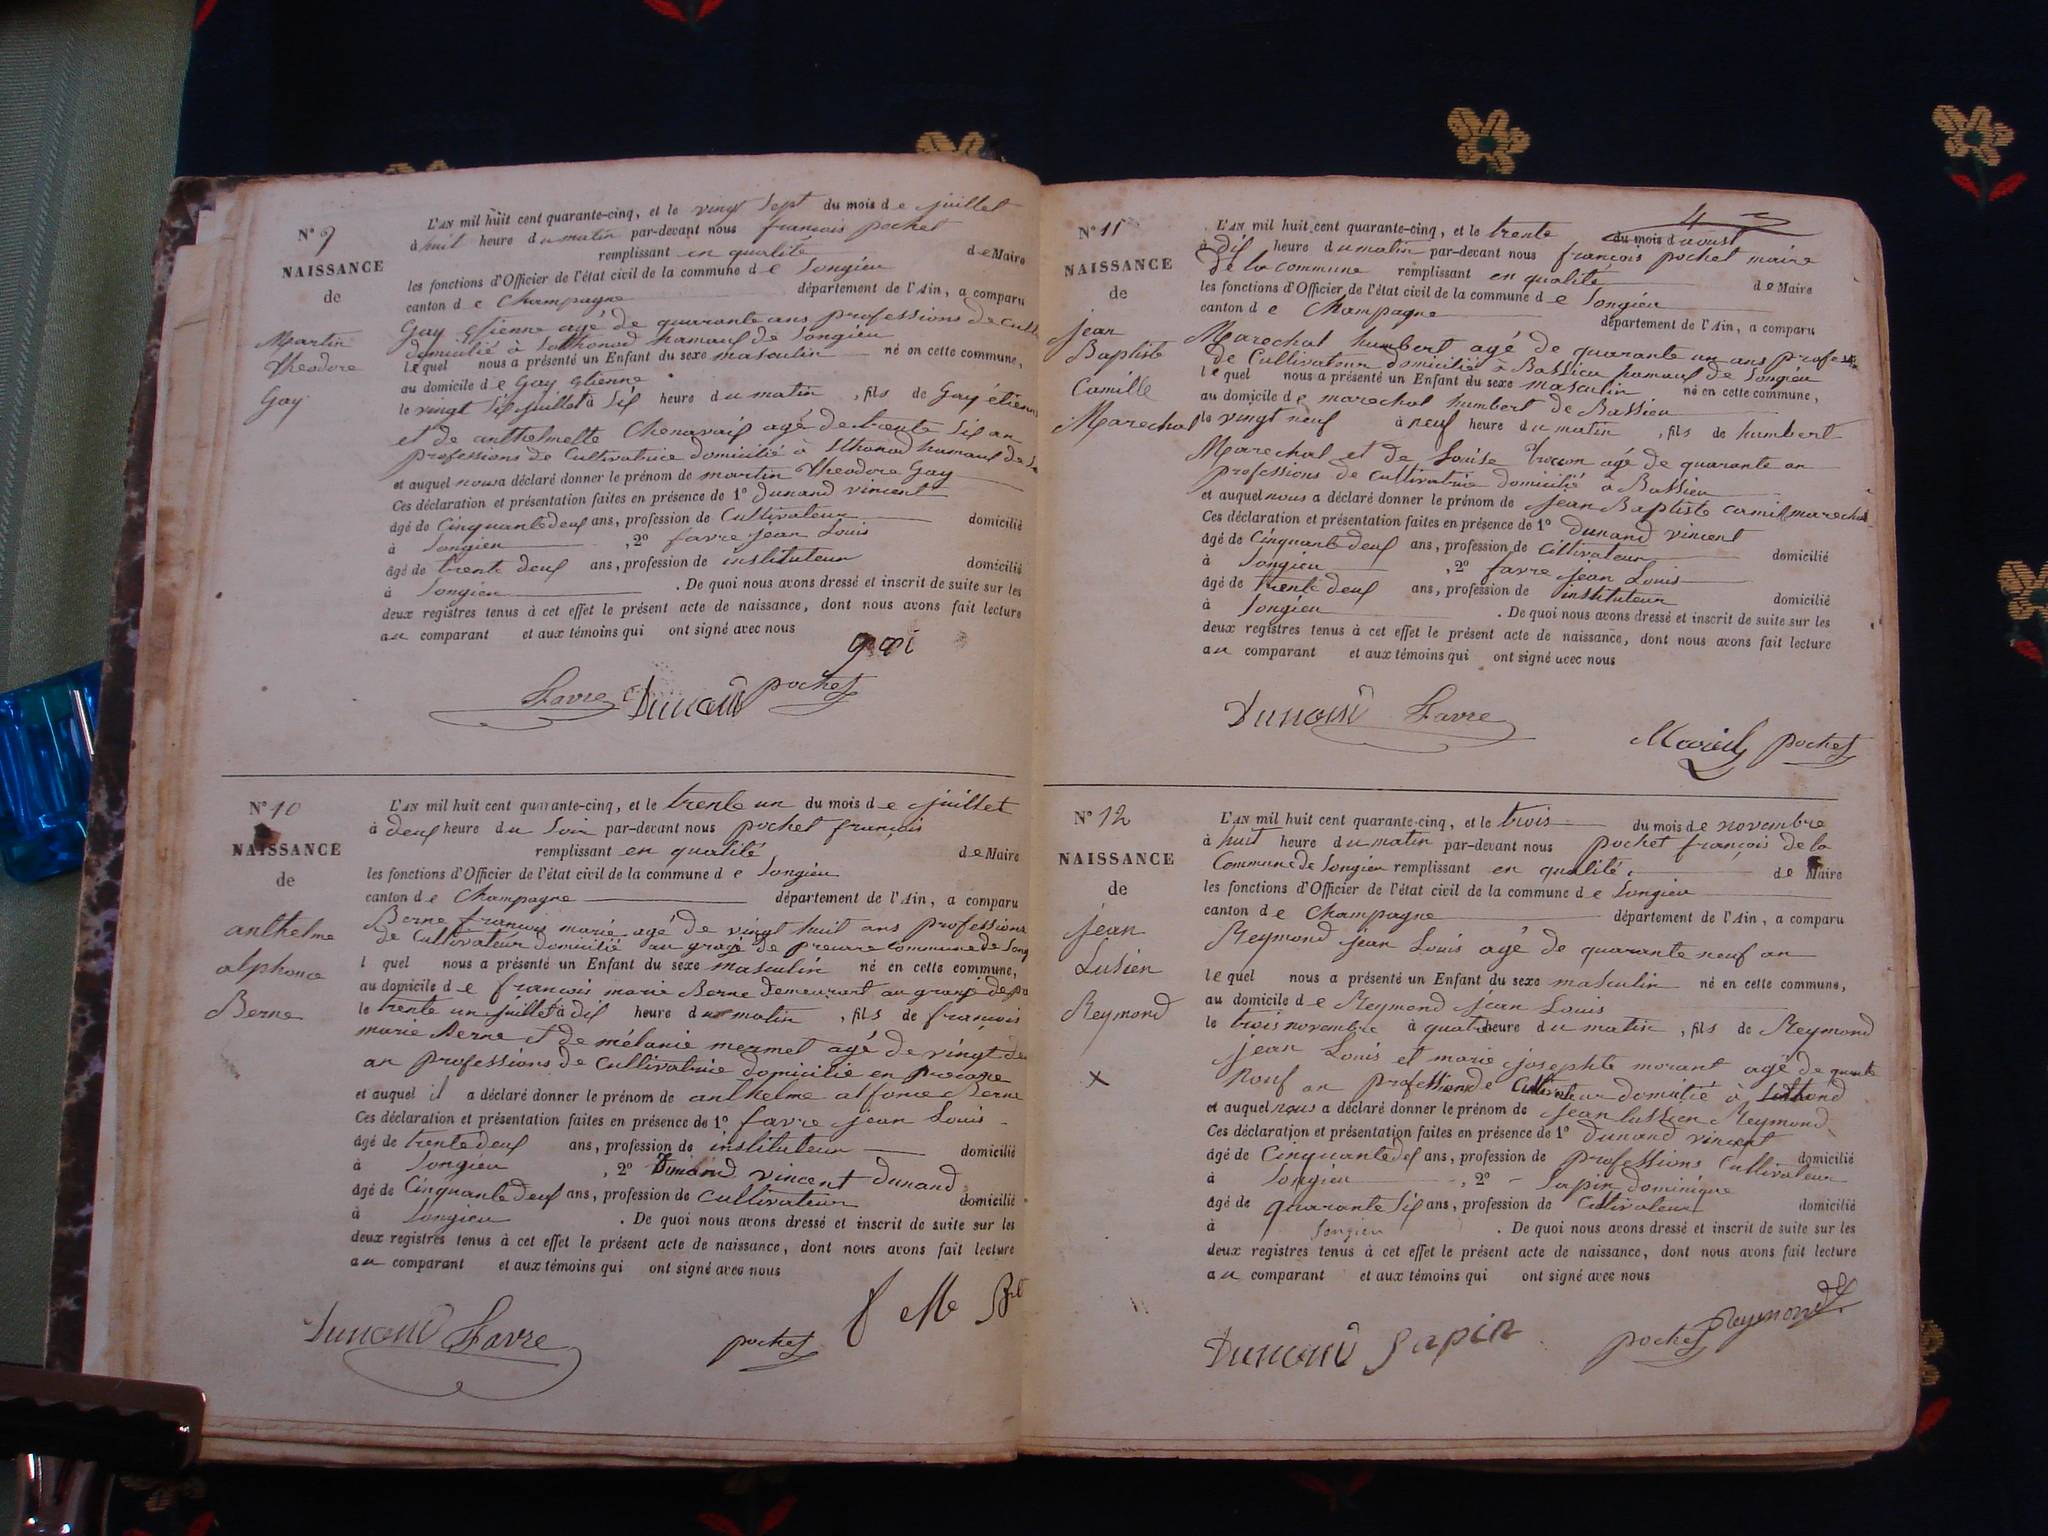 N° 9
NAISSANCE
de
Martin
Theodore
Gay
L'AN mil huit cent quarante-cinq, et le vingt sept du mois de juillet
à huit heure du matin par-devant nous francois pochet
remplissant en qualité de Maire
les fonctions d'Officier de l'état civil de la commune de Songieu
canton de Champagne département de l'Ain, a comparu
Gay etienne agé de quarante ans professions de cult
domicilié à Sothonod hamauf de Songieu
lequel nous a présenté un Enfant du sexe masculin né en cette commune,
au domicile de Gay etienne
le vingt six juillet à six heure du matin, fils de Gay étienn
et de anthelmette Chenavaix agé de trente six an
professions de Cultivatrice domicilié à Sthonod humauf de S
et auquel nous a déclaré donner le prénom de martin theodore Gay
Ces déclaration et présentation faites en présence de 1° dunand vincent
âgé de Cinquante deux ans, profession de Cultivateur domicilié
à Songieu, 2° favre jean Louis
âgé de trente deux ans, profession de instituteur domicilié
à Songieu. De quoi nous avons dressé et inscrit de suite sur les
deux registres tenus à cet effet le présent acte de naissance, dont nous avons fait lecture
au comparant et aux témoins qui ont signé avec nous
Favre Dunand pochet
N° 10
NAISSANCE
de
anthelme
alphonce
Berne
L'AN mil huit cent quarante-cinq, et le trente un du mois de juillet
à deux heure du Soir par-devant nous pochet françois
remplissant en qualité de Maire
les fonctions d'Officier de l'état civil de la commune de Songieu
canton de Champagne département de l'Ain, a comparu
Berne francois marie agé de vingt huit ans professions
de Cultivateur domicilié au de commune de Song
l quel nous a présenté un Enfant du sexe masculin né en cette commune,
au domicile de francois marie Berne demeurant au
le trente un juillet à dix heure du matin, fils de francois
marie Berne et de mélanie mermet agé de vingt de
an professions de Cultivatrice domicilié en
et auquel il a déclaré donner le prénom de anthelme alfonce Berne
Ces déclaration et présentation faites en présence de 1° favre jean Louis
âgé de trente deux ans, profession de instituteur domicilié
à Songieu, 2° Dunand vincent dunand
âgé de Cinquante deux ans, profession de cultivateur domicilié
à Songieu. De quoi nous avons dressé et inscrit de suite sur les
deux registres tenus à cet effet le présent acte de naissance, dont nous avons fait lecture
au comparant et aux témoins qui ont signé avec nous
Dunand Favre pochet
N° 11
NAISSANCE
de
jean
Baptiste
Camille
Marechal
L'AN mil huit cent quarante-cinq, et le trente du mois d aoust
à dix heure du matin par-devant nous françois pochet maire
de la commune remplissant en qualité de Maire
les fonctions d'Officier de l'état civil de la commune de Songieu
canton de Champagne département de l'Ain, a comparu
Marechal humbert agé de quarante un ans profess
de Cultivateur domicilié à Bassieu hamauf de Songieu
lequel nous a présenté un Enfant du sexe masculin né en cette commune,
au domicile de marechal humbert de Bassieu
le vingt neuf à neuf heure du matin, fils de humbert
Marechal et de Louise agé de quarante an
professions de cultivatrice domicilié à Bassieu
et auquel nous a déclaré donner le prénom de jean Baptiste camil marechal
Ces déclaration et présentation faites en présence de 1° dunand vincent
âgé de Cinquante deux ans, profession de Cultivateur domicilié
à Songieu, 2° favre jean Louis
âgé de trente deux ans, profession de instituteur domicilié
à Songieu. De quoi nous avons dressé et inscrit de suite sur les
deux registres tenus à cet effet le présent acte de naissance, dont nous avons fait lecture
au comparant et aux témoins qui ont signé avec nous
Dunand Favre
pochet
N° 12
NAISSANCE
de
jean
Lusien
Reymond
L'AN mil huit cent quarante-cinq, et le trois du mois de novembre
à huit heure du matin par-devant nous pochet françois de la
Commune de Songieu remplissant en qualité de Maire
les fonctions d'Officier de l'état civil de la commune de Songieu
canton de Champagne département de l'Ain, a comparu
Reymond jean Louis agé de quarante neuf an
lequel nous a présenté un Enfant du sexe masculin né en cette commune,
au domicile de Reymond jean Louis
le trois novembre à quatr heure du matin, fils de Reymond
jean Louis et marie josephte morant agé de
nouf an profession de Cultivateur domicilié à
et auquel nous a déclaré donner le prénom de jean lussien Reymond
Ces déclaration et présentation faites en présence de 1° dunand vincent
âgé de Cinquante dex ans, profession de professions Cultivateur domicilié
à Songieu, 2° Sapin dominique
âgé de quarante six ans, profession de Cultivateur domicilié
à Songieu. De quoi nous avons dressé et inscrit de suite sur les
deux registres tenus à cet effet le présent acte de naissance, dont nous avons fait lecture
au comparant et aux témoins qui ont signé avec nous
Dunand Sapin pochet Reymond